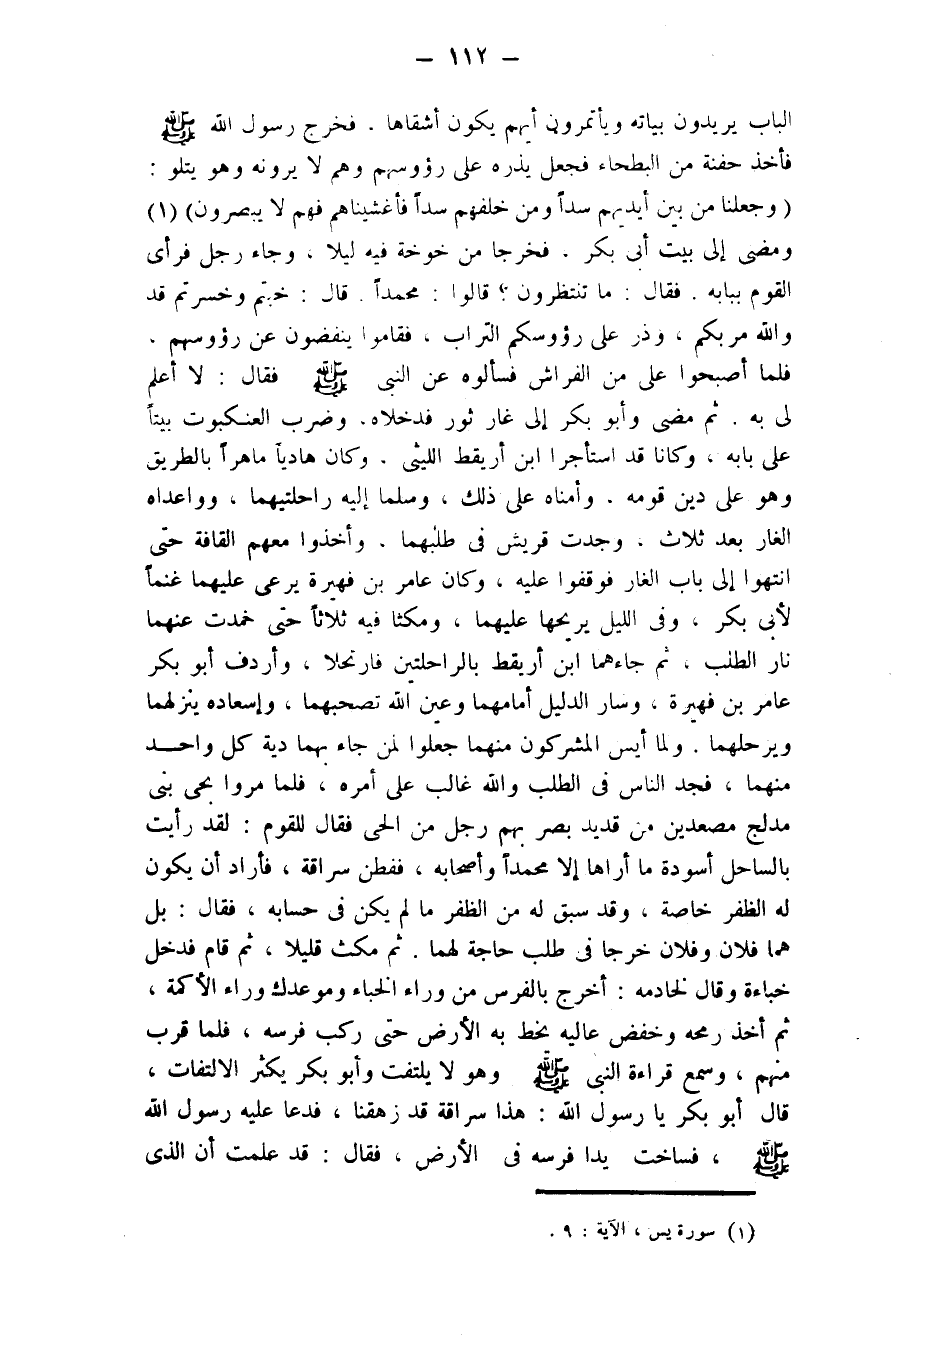 – ١١٢ –
الباب يريدون بياته ويأتمرون أيهم يكون أشقاها . فخرج رسول الله ﷺ
فأخذ حفنة من البطحاء فجعل يذره على رؤوسهم وهم لا يرونه وهو يتلو :
( وجعلنا من بين أيديهم سداً ومن خلفهم سداً فأغشيناهم فهم لا يبصرون) (١)
ومضى إلى بيت أبى بكر . فخرجا من خوخة فيه ليلا ، وجاء رجل فرأى
القوم ببابه . فقال : ما تنتظرون ؟ قالوا : محمداً . قال : خبتم وخسرتم قد
والله مر بكم ، وذر على رؤوسكم التراب ، فقاموا ينفضون عن رؤوسهم .
فلما أصبحوا على من الفراش فسألوه عن النبى ﷺ فقال : لا أعلم
لى به . ثم مضى وأبو بكر إلى غار ثور فدخلاه. وضرب العنكبوت بيتاً
على بابه ، وكانا قد استأجرا ابن أريقط الليثى . وكان هادياً ماهراً بالطريق
وهو على دين قومه . وأمناه على ذلك ، وسلما إليه راحلتيهما ، وواعداه
الغار بعد ثلاث . وجدت قريش فى طلبهما . وأخذوا معهم القافة حتى
انتهوا إلى باب الغار فوقفوا عليه ، وكان عامر بن فهيرة يرعى عليهما غنماً
لأبى بكر ، وفى الليل يريحها عليهما ، ومكثا فيه ثلاثاً حتى خمدت عنهما
نار الطلب ، ثم جاءهما ابن أريقط بالراحلتين فارتحلا ، وأردف أبو بكر
عامر بن فهيرة ، وسار الدليل أمامهما وعين الله تصحبهما ، وإسعاده ينزلهما
ويرحلهما . ولما أيس المشركون منهما جعلوا لمن جاء بهما دية كل واحــد
منهما ، فجد الناس فى الطلب والله غالب على أمره ، فلما مروا بحى بنى
مدلج مصعدين من قديد بصر بهم رجل من الحى فقال للقوم : لقد رأيت
بالساحل أسودة ما أراها إلا محمداً وأصحابه ، ففطن سراقة ، فأراد أن يكون
له الظفر خاصة ، وقد سبق له من الظفر ما لم يكن فى حسابه ، فقال : بل
هما فلان وفلان خرجا فى طلب حاجة لهما . ثم مكث قليلا ، ثم قام فدخل
خباءة وقال لخادمه : أخرج بالفرس من وراء الخباء وموعدك وراء الأكمة ،
ثم أخذ رمحه وخفض عاليه يخط به الأرض حتى ركب فرسه ، فلما قرب
منهم ، وسمع قراءة النبى ﷺ وهو لا يلتفت وأبو بكر يكثر الالتفات ،
قال أبو بكر يا رسول الله : هذا سراقة قد زهقنا ، فدعا عليه رسول الله
ﷺ ، فساخت يدا فرسه فى الأرض ، فقال : قد علمت أن الذى
(١) سورة يس ، الآية : ٩ .